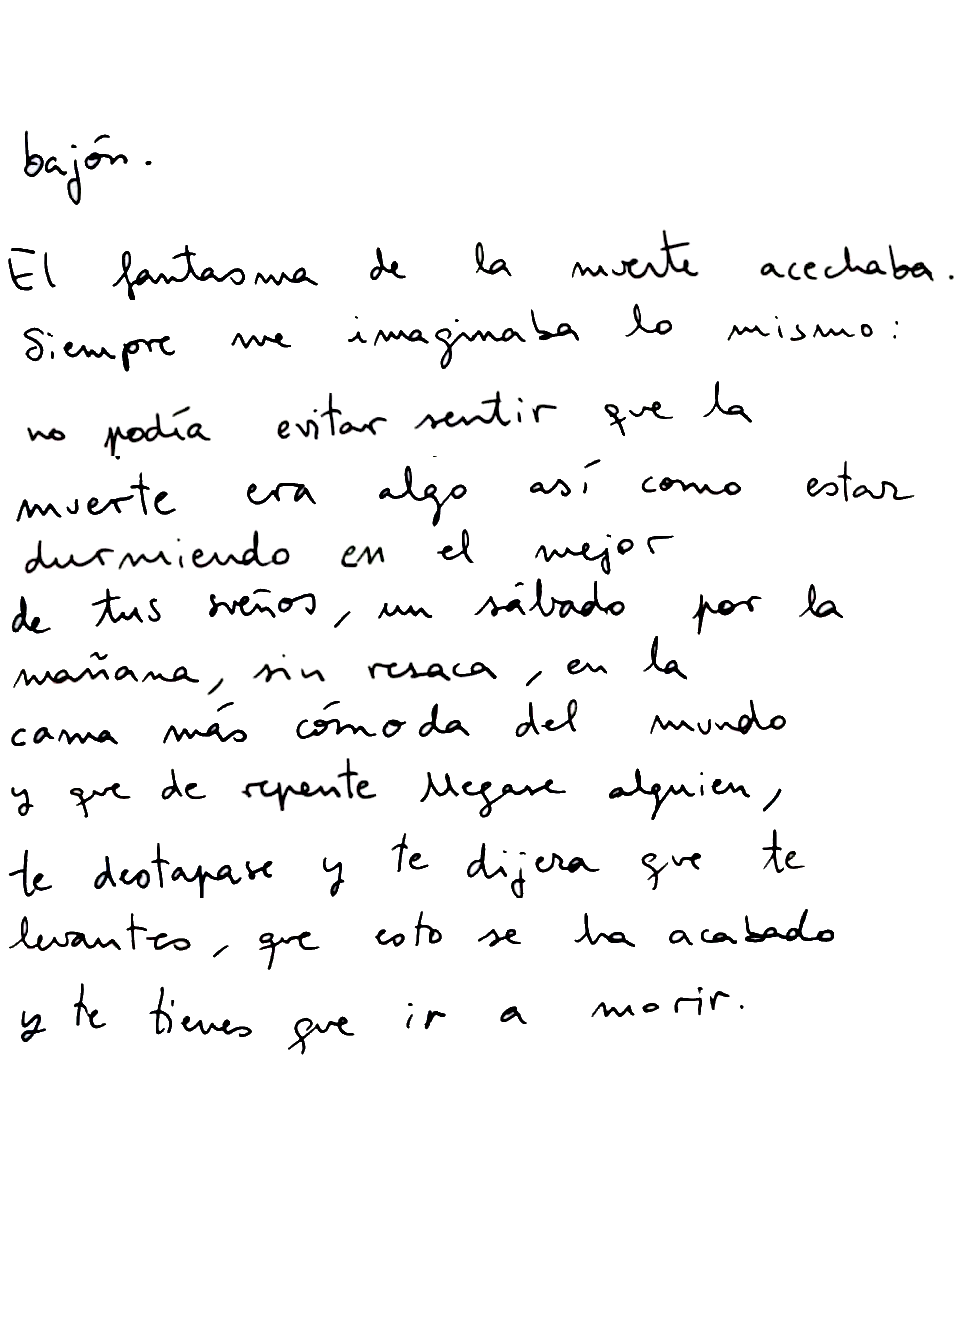 bajón.
El fantasma de la muerte acechaba.
Siempre me imaginaba lo mismo:
no podía evitar sentir que la
muerte era algo así como estar
durmiendo en el mejor
de tus sueños, un sábado por la
mañana, sin resaca, en la
cama más cómoda del mundo
y que de repente llegase alguien,
te destapase y te dijera que te
levantes, que esto se ha acabado
y te tienes que ir a morir.